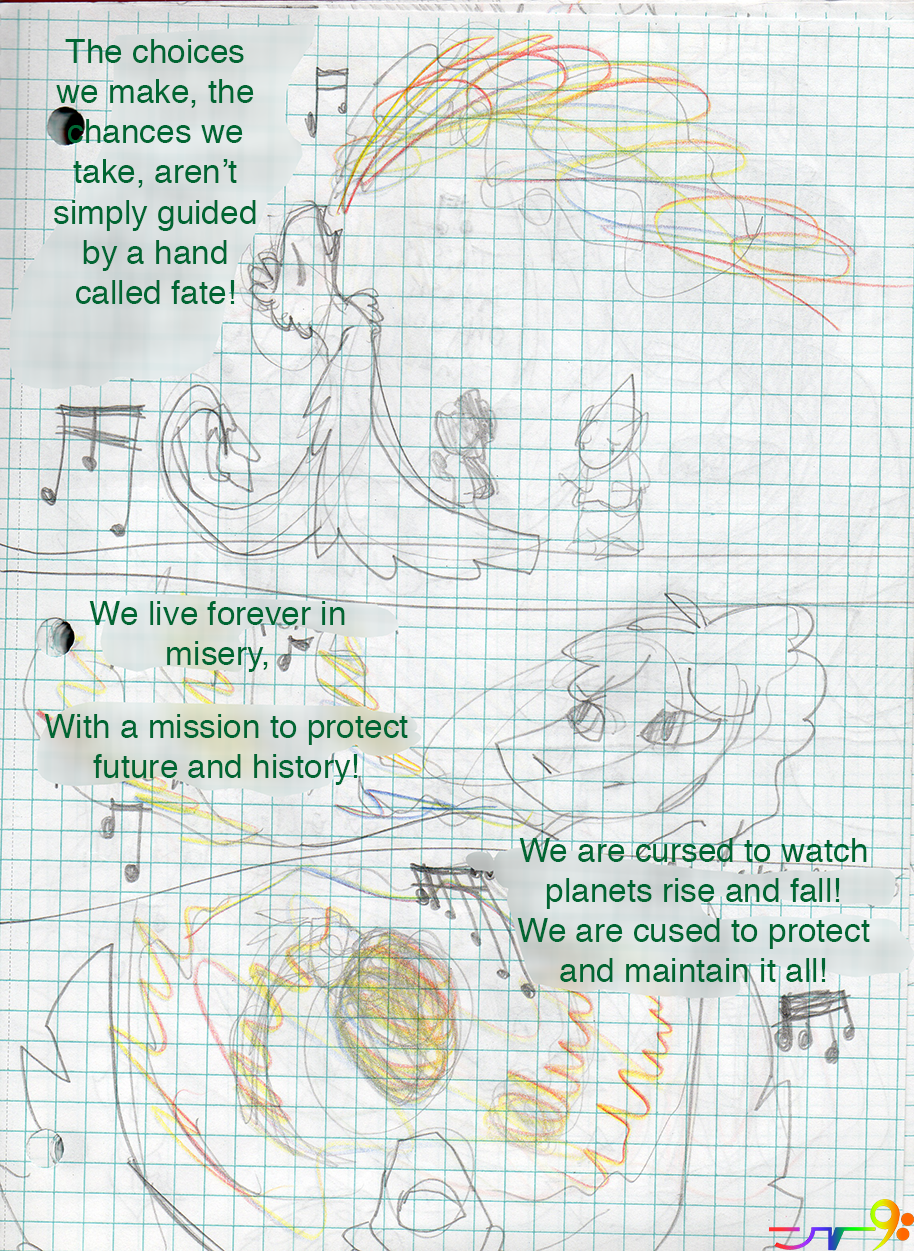 The choices
we make, the
chances we
take, aren't
simply guided
by a hand
called fate!
We live forever in
misery,
With a mission to protect
future and history!
We are cursed to watch
planets rise and fall!
We are cused to protect
and maintain it all!